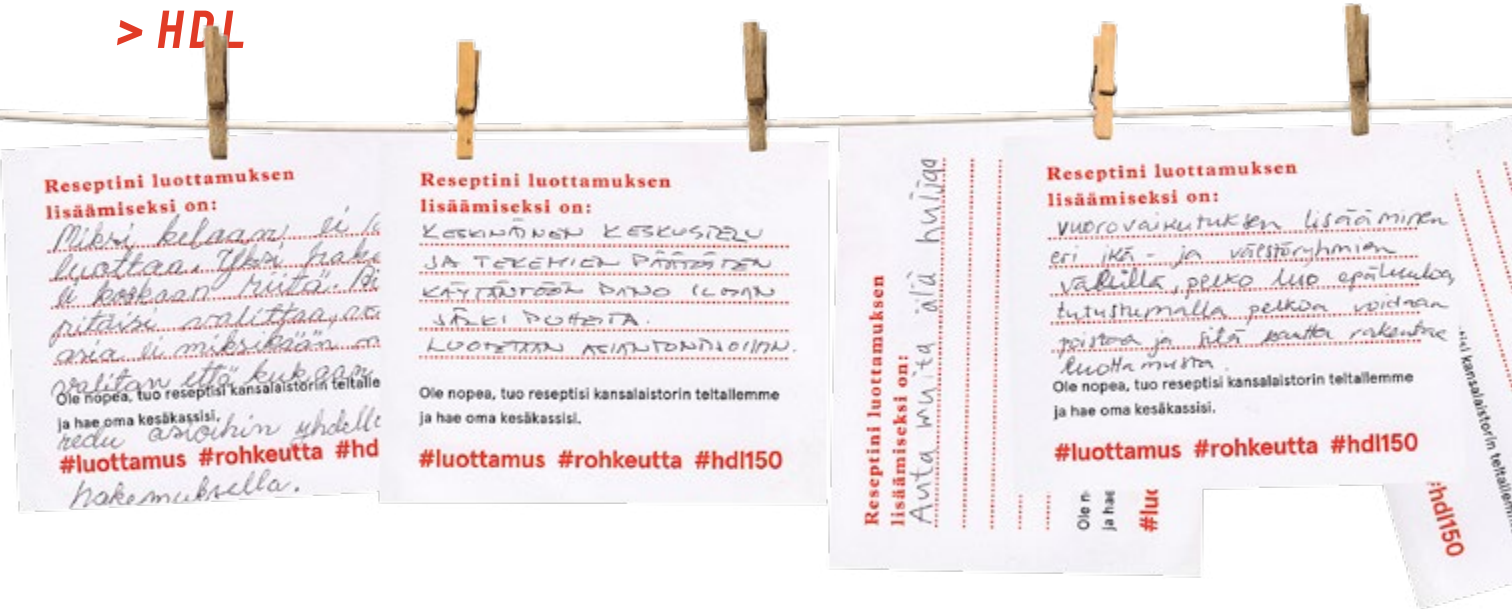 > HDL
Reseptini luottamuksen
lisäämiseksi on:
Miksi kelaan ei
luottaa. Yksi hake
ei koskaan riitä.
pitäisi valittaa,
asia ei miksikään
valitan että kukaan
Ole nopea, tuo reseptisi kansalaistorin teltalle
ja hae oma kesäkassisi.
asioihin yhdell
#luottamus #rohkeutta #hd
hakemuksella.
Reseptini luottamuksen
lisäämiseksi on:
KESKINÄINEN KESKUSTELU
JA TEKEMIEN PÄÄTÖSTEN
KÄYTÄNTÖÖN PANO ILMAN
JÄLKI PUHEITA.
LUOTETAAN ASIANTUNTIJOIHIN.
Ole nopea, tuo reseptisi kansalaistorin teltallemme
ja hae oma kesäkassisi.
#luottamus #rohkeutta #hdl150
Reseptini luottamuksen
lisäämiseksi on:
Auta muita älä huijaa
Ole n
ja hae
#luo
Reseptini luottamuksen
lisäämiseksi on:
vuorovaikutuksen lisääminen
eri ikä- ja väestöryhmien
välillä, pelko luo epäluuloa,
tutustumalla pelkoa voidaan
poistaa ja sitä kautta rakentaa
luottamusta.
Ole nopea, tuo reseptisi kansalaistorin teltallemme
ja hae oma kesäkassisi.
#luottamus #rohkeutta #hdl150
kansalaistorin teltallemm
#hdl150